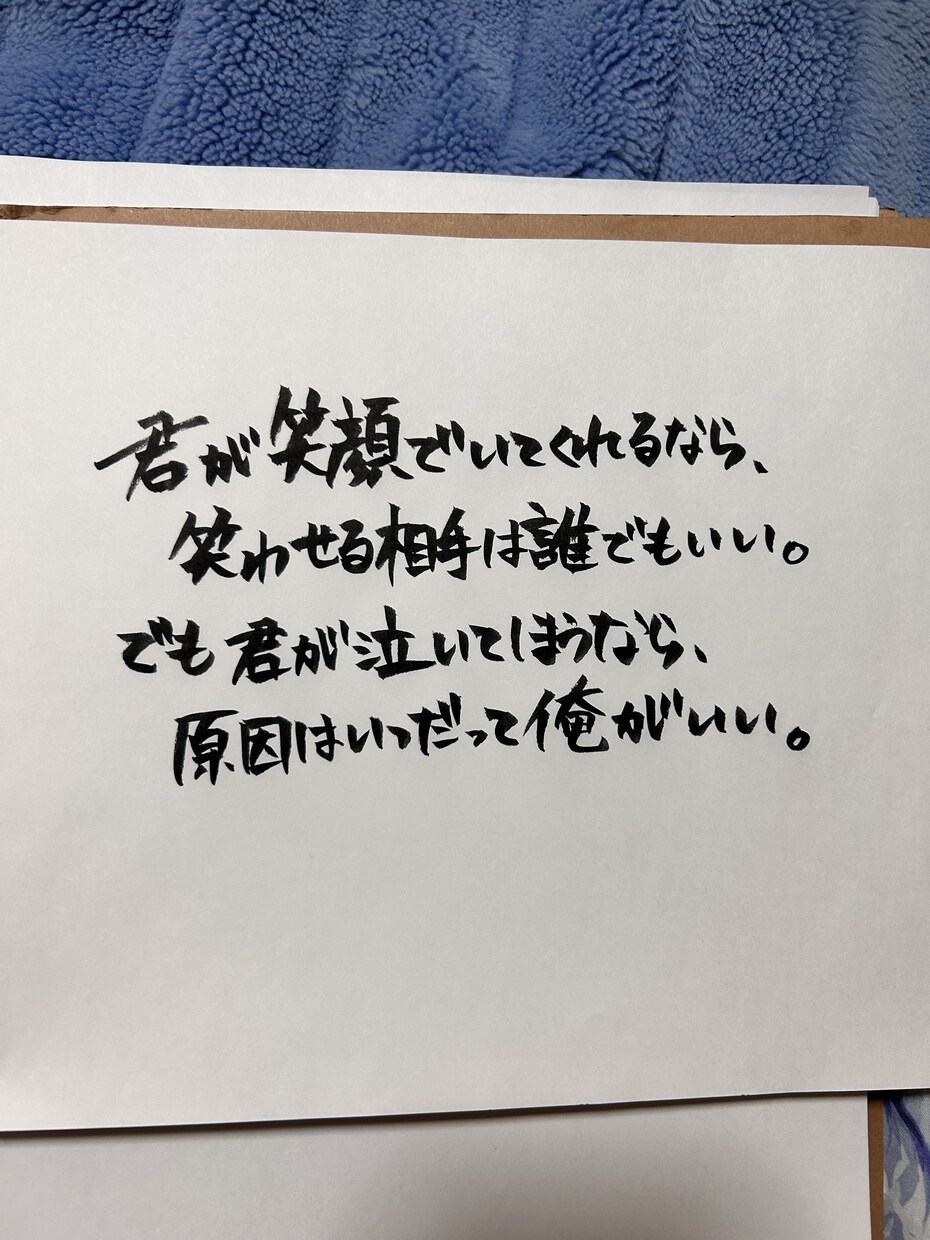 君が笑顔でいてくれるなら、
笑わせる相手は誰でもいい。
でも君が泣いてしまうなら、
原因はいつだって俺がいい。